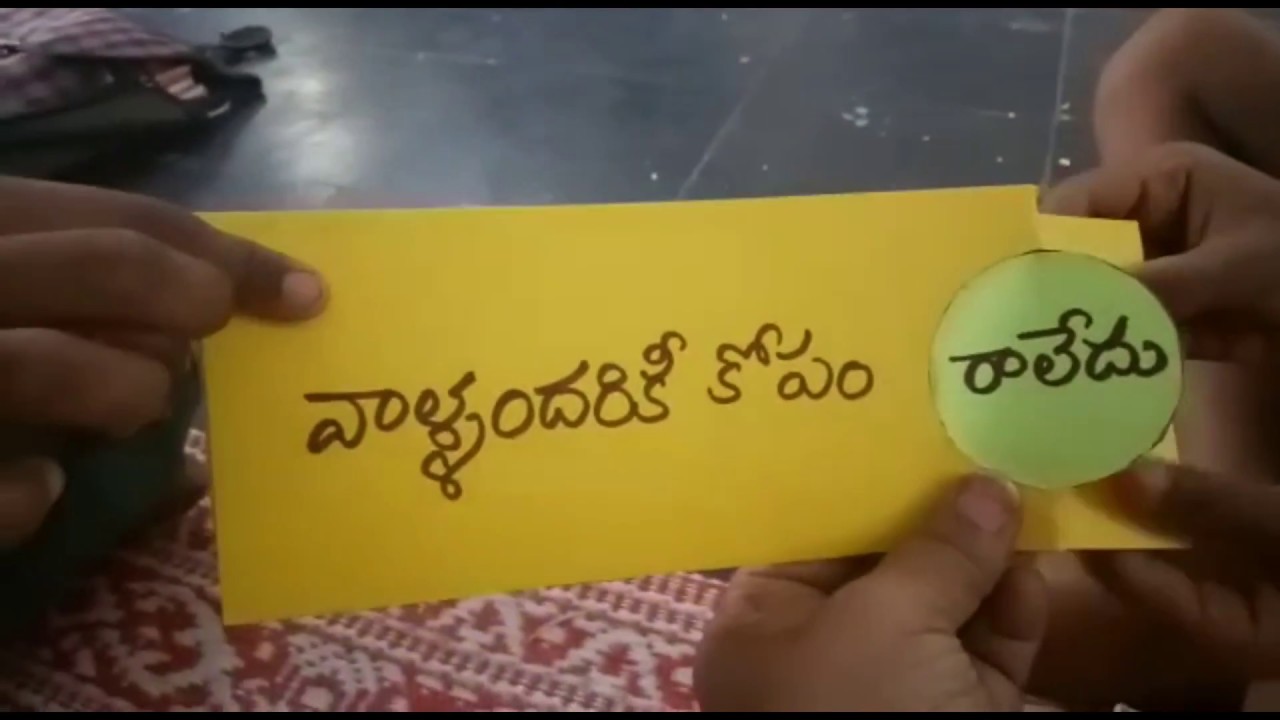 వాళ్ళందరికీ కోపం రాలేదు